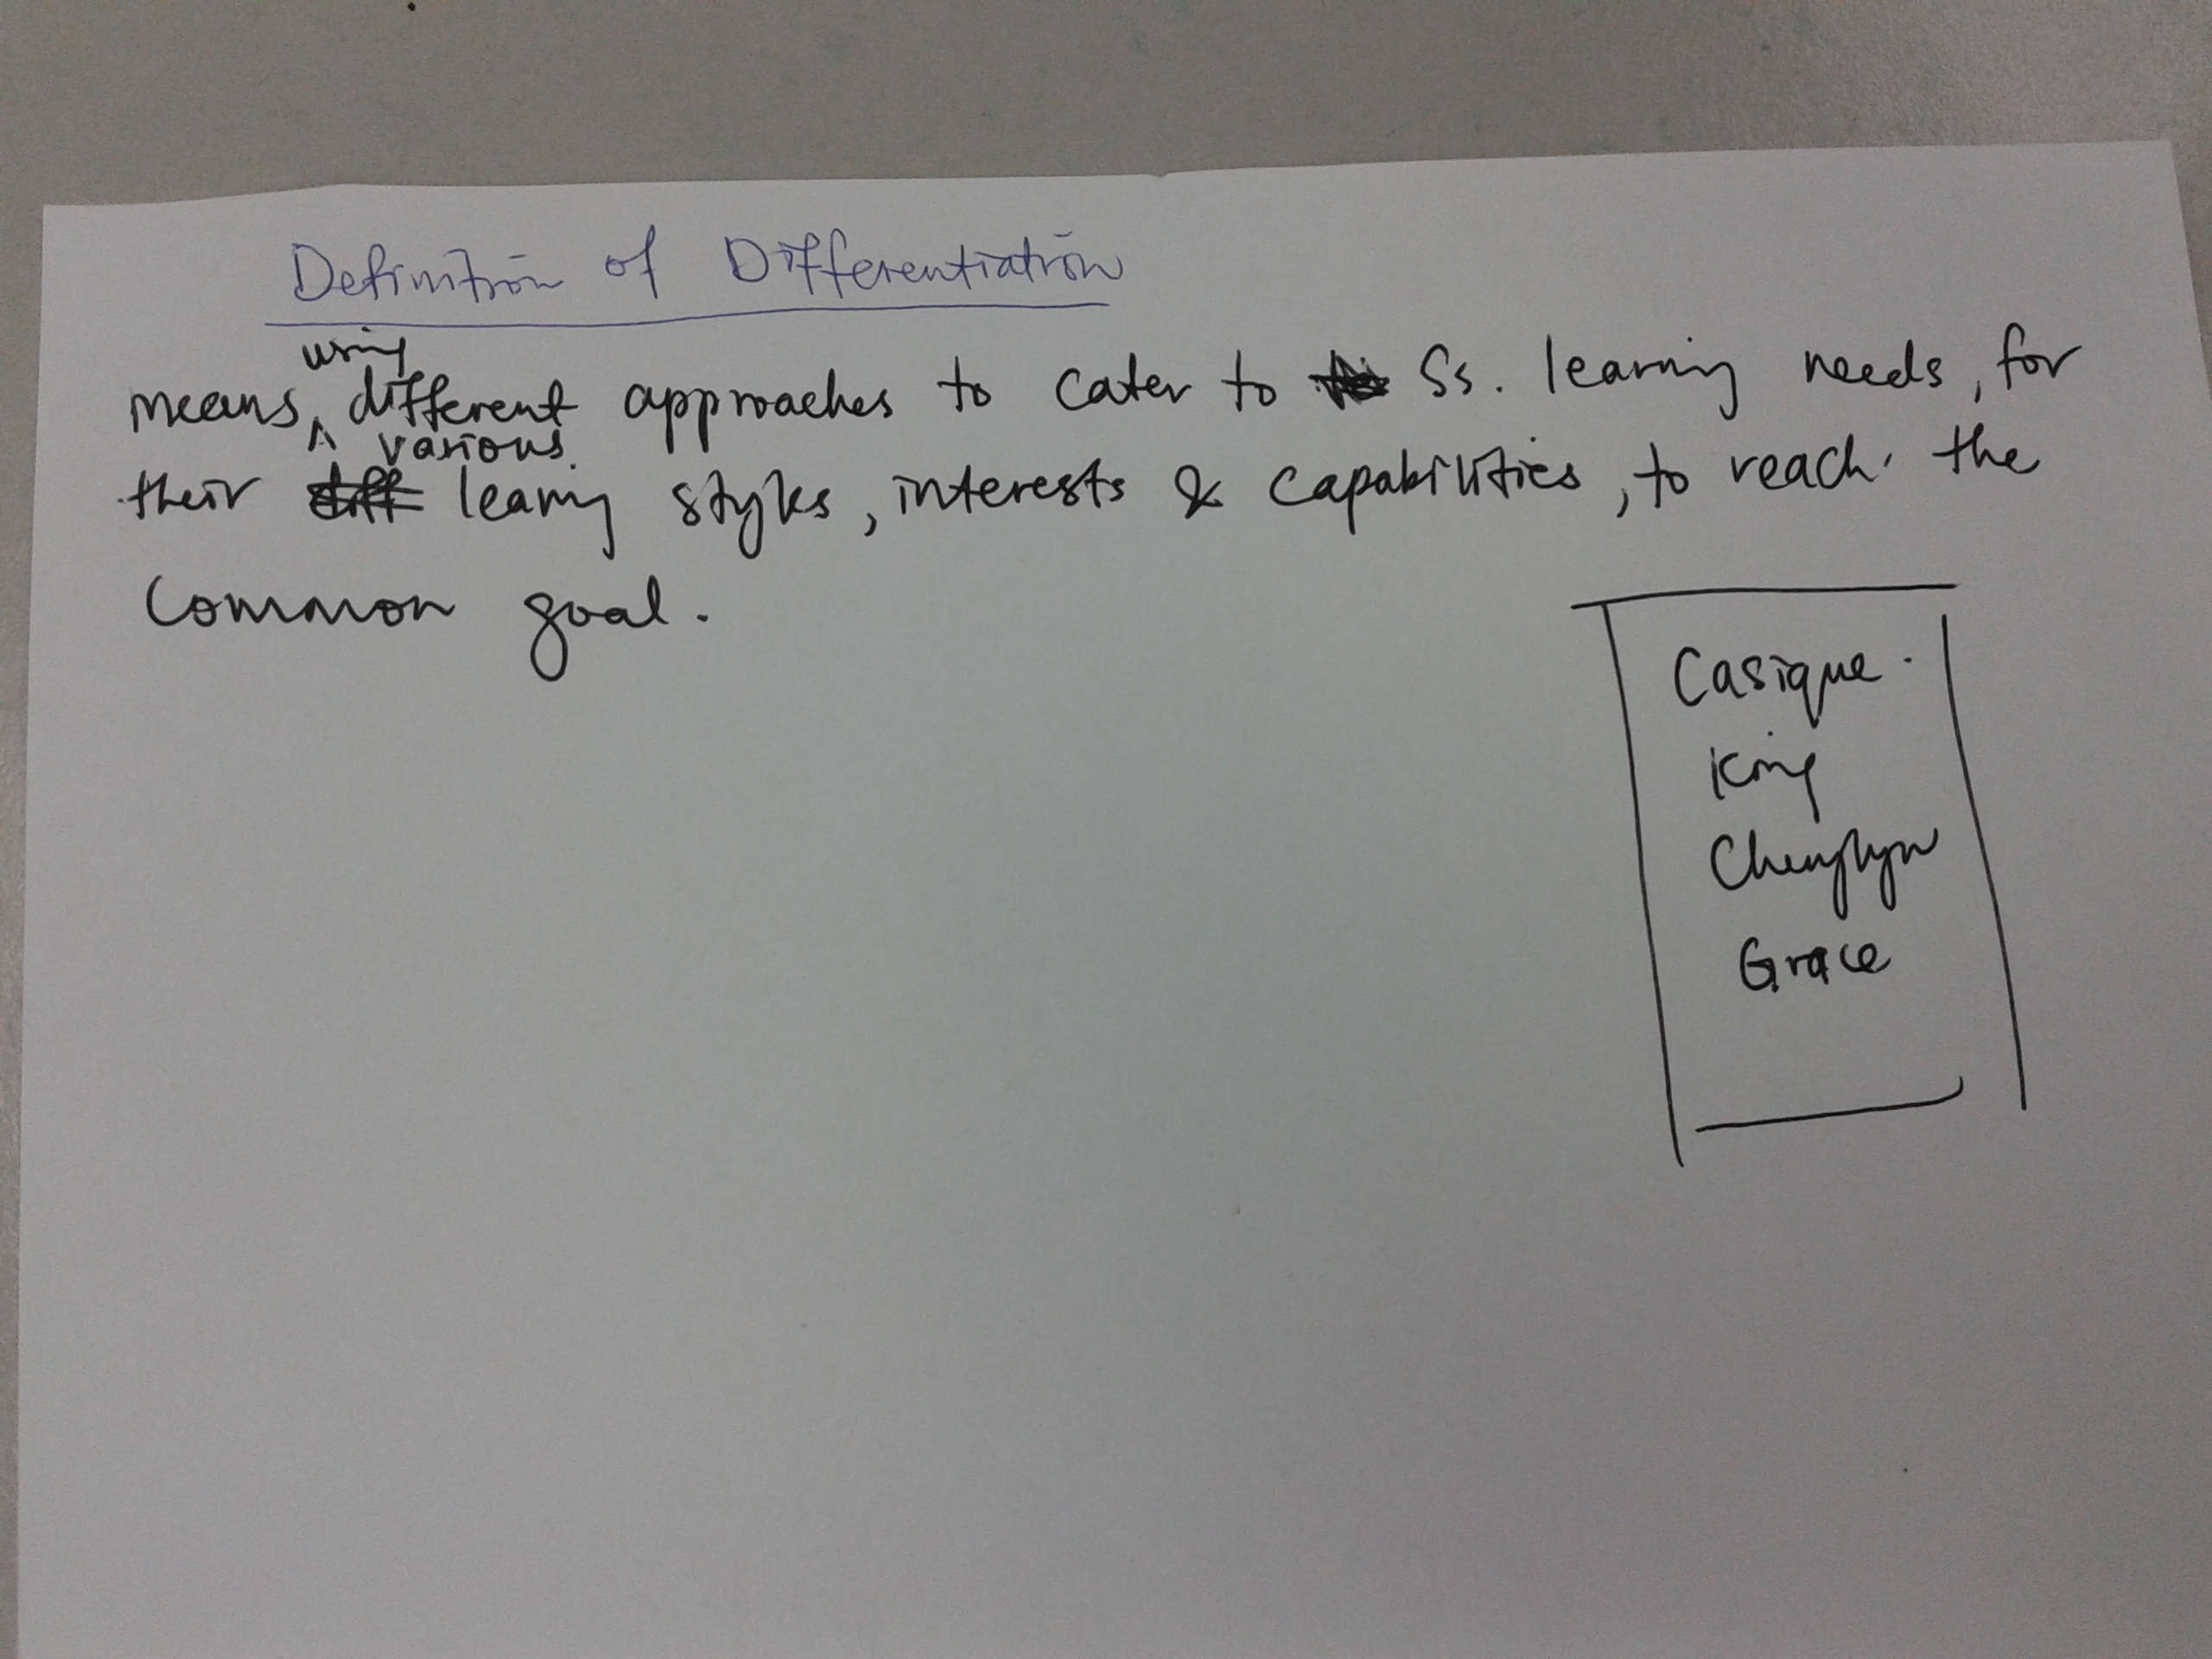 Definition of Differentiation
using
means ^ different approaches to cater to Ss. learning needs, for
various
their diff learing styles, interests & capabilities, to reach the
Common goal.
Casique.
King
Cherylyn
Grace